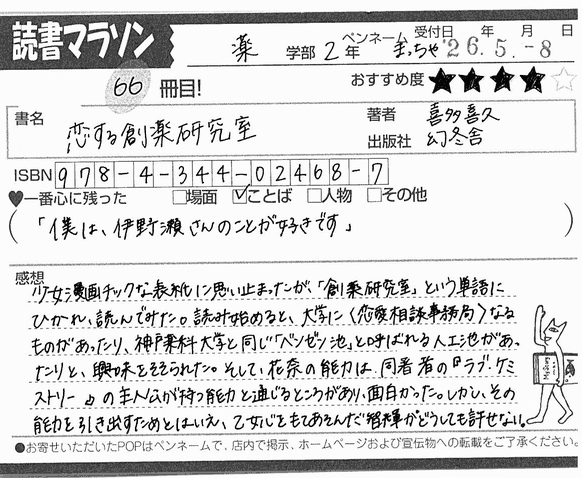 読書マラソン
薬 学部 2年 ペンネーム まっちゃ 受付日 '26.年5.月-8日
66 冊目! おすすめ度 ★★★★☆
書名 恋する創薬研究室
著者 喜多喜久
出版社 幻冬舎
ISBN 978-4-344-02468-7
♥一番心に残った □場面 ☑ことば □人物 □その他
(「僕は、伊野瀬さんのことが好きです」)
感想
少女漫画チックな表紙に思い止まったが、「創薬研究室」という単語に
ひかれ、読んでみた。読み始めると、大学に〈恋愛相談事務局〉なる
ものがあったり、神戸薬科大学と同じ「ベンゼン池」と呼ばれる人工池があっ
たりと、興味をそそられた。そして、花奈の能力は、同著者の『ラブ・ケミ
ストリー』の主人公が持つ能力と通じるところがあり、面白かった。しかし、その
能力を引き出すためとはいえ、乙女心をもてあそんだ智輝がどうしても許せない。
●お寄せいただいたPOPはペンネームで、店内で掲示、ホームページおよび宣伝物への転載をご了承ください。